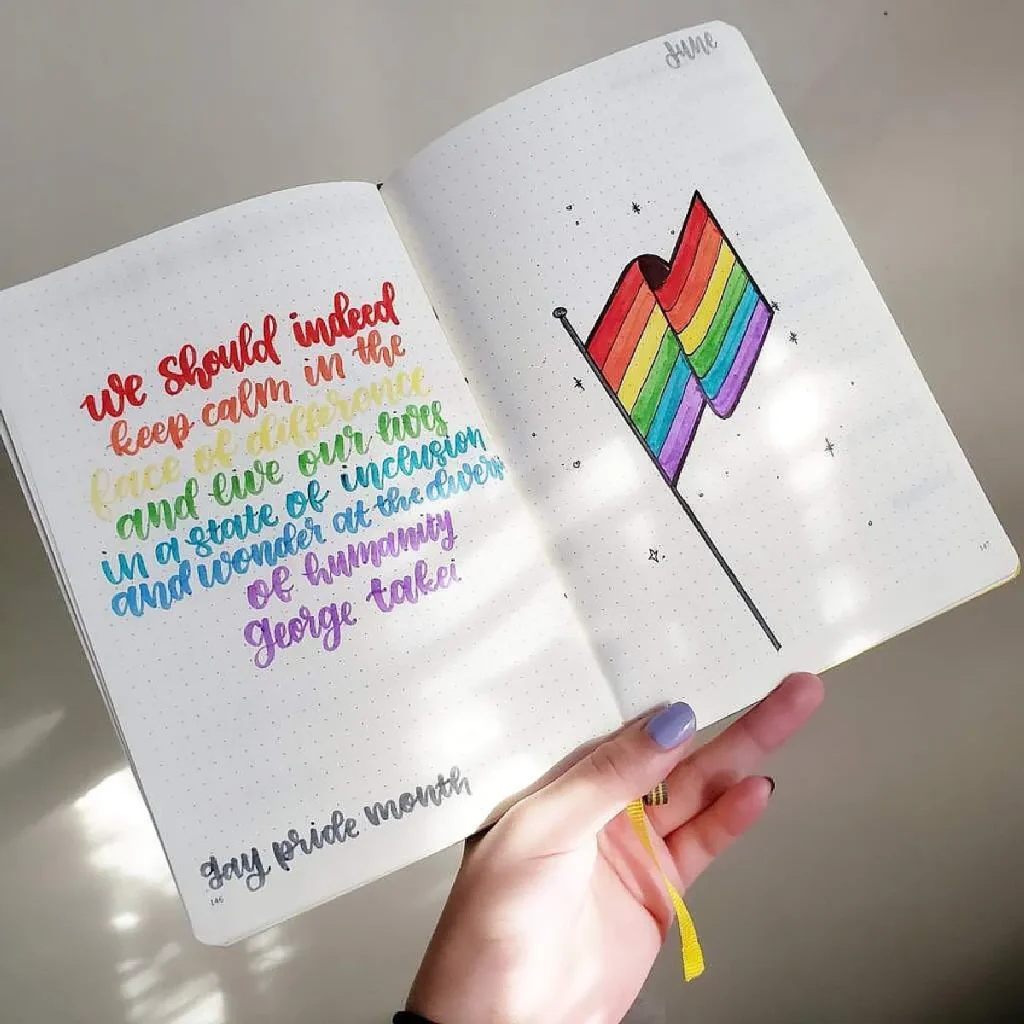 we should indeed
keep calm in the
face of difference
and live our lives
in a state of inclusion
and wonder at the
of humanity
george takei
gay pride month
146
june
147